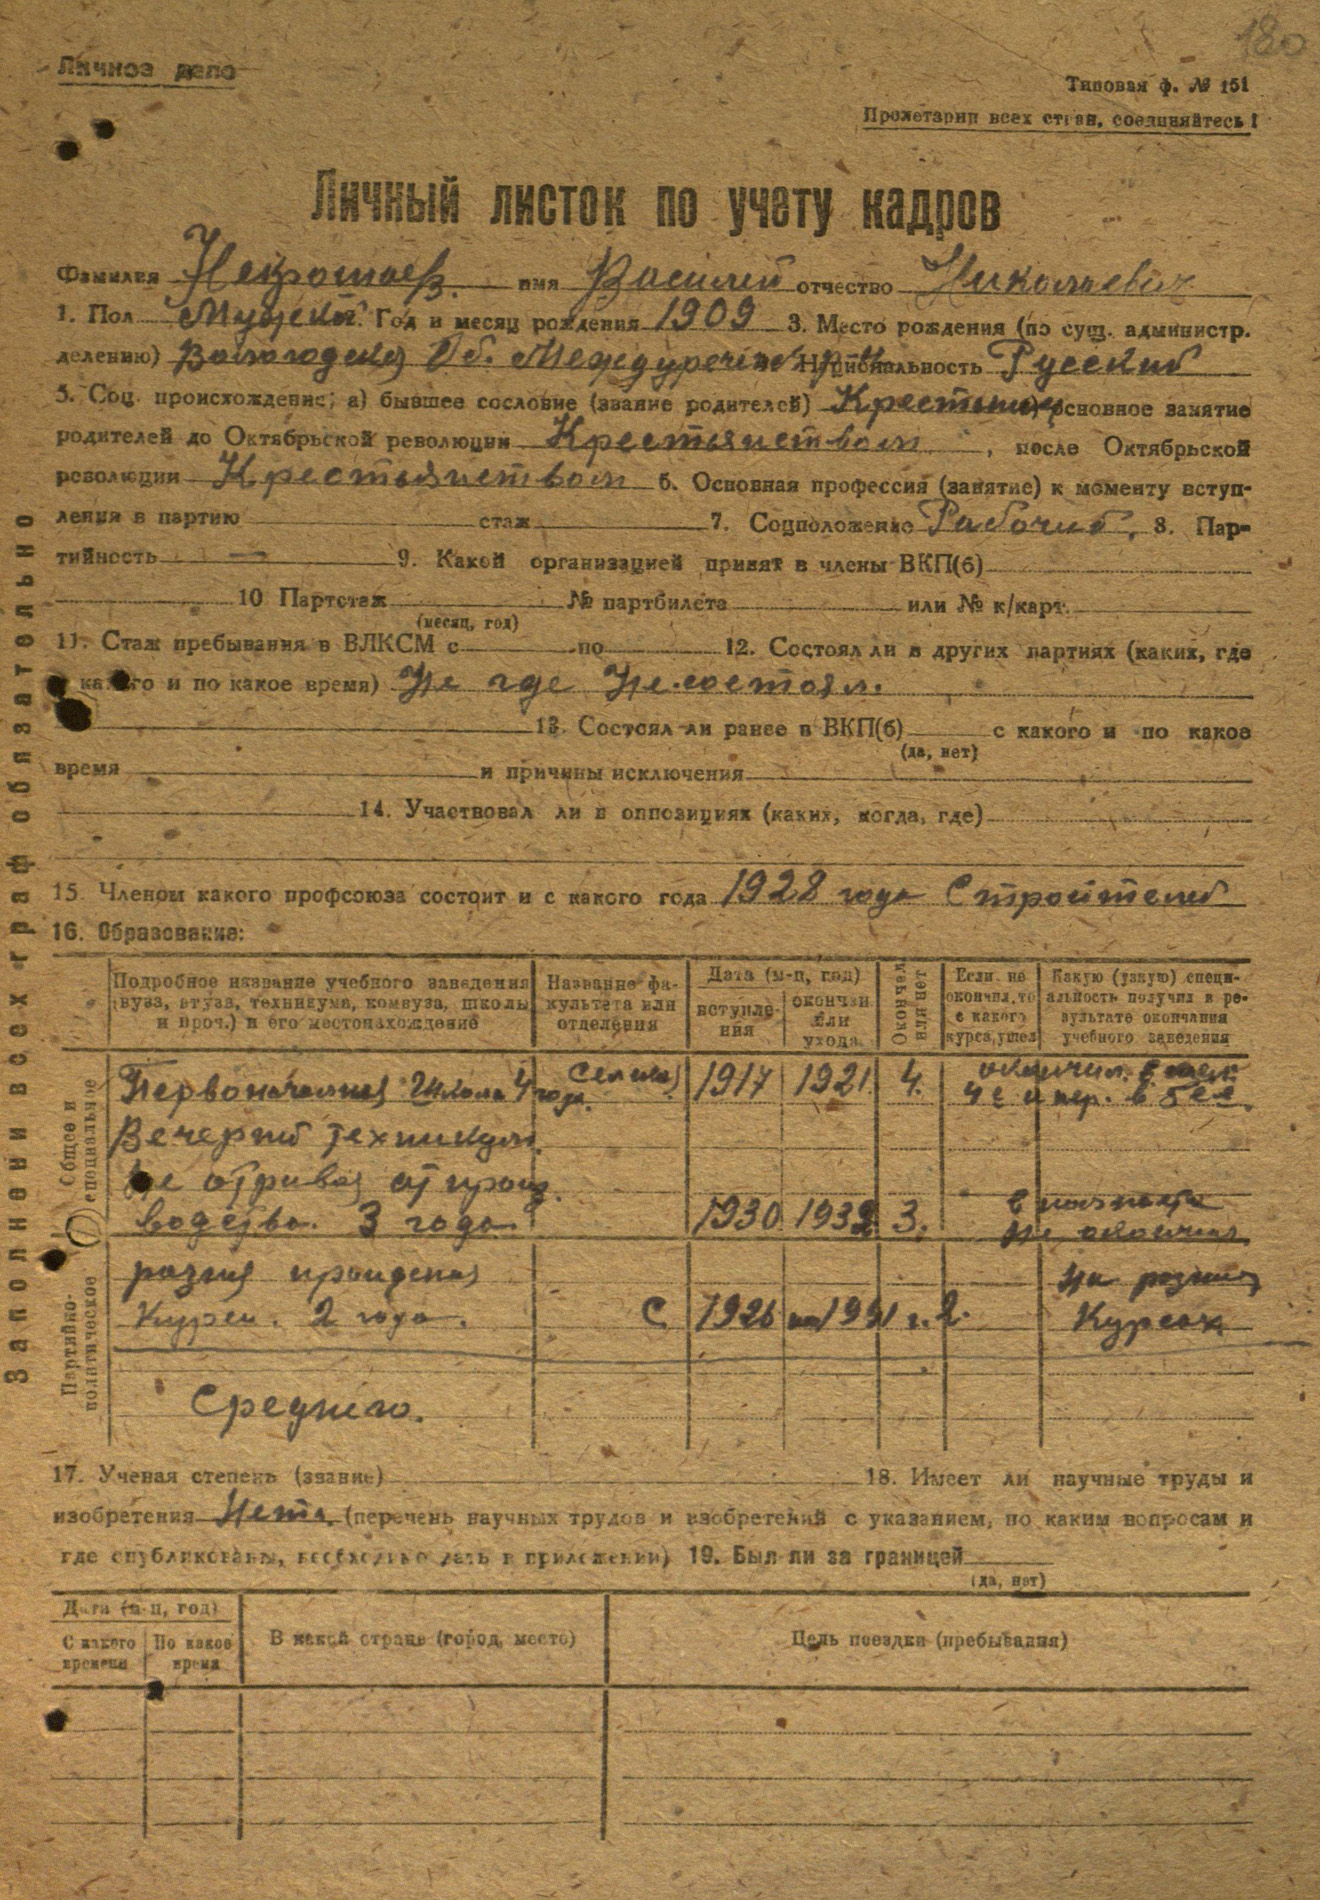 180
Личное дело
Типовая ф. № 151
Пролетарии всех стран, соединяйтесь!
Личный листок по учету кадров
Фамилия имя Василий отчество Николаевич
1. Пол Мужской. Год и месяц рождения 1909 3. Место рождения (по сущ. администр.
делению) Вологодская Об. Междуречен Национальность Русский
5. Соц. происхождение: а) бывшее сословие (звание родителей) основное занятие
родителей до Октябрьской революции Крестьянством, после Октябрьской
революции Крестьянством 6. Основная профессия (занятие) к моменту вступ-
ления в партию стаж 7. Соцположение Рабочий, 8. Пар-
тийность — 9. Какой организацией принят в члены ВКП(б)
10 Партстаж № партбилета или № к/карт.
(месяц, год)
11. Стаж пребывания в ВЛКСМ с по 12. Состоял ли в других партиях (каких, где
с какого и по какое время) Не где Не состоял.
13. Состоял ли ранее в ВКП(б) с какого и по какое
(да, нет)
время и причины исключения
14. Участвовал ли в оппозициях (каких, когда, где)
15. Членом какого профсоюза состоит и с какого года 1928 года Строителей
16. Образование:
Подробное название учебного заведения (вуза, втуза, техникума, комвуза, школы и проч.) и его местонахождение
Название факультета или отделения
Дата (м-ц, год)
вступления
окончан. или ухода
Окончил или нет
Если не окончил, то с какого курса ушел
Какую (узкую) специальность получил в результате окончания учебного заведения
Общее и специальное
Первоначальная Школа 4 года. 1917 1921 4. окончил.
4 и пер. в 5
Вечерний техникум
не отрывая от произ
водства. 3 года 1930 1932 3.
не окончил
Партийно-политическое
разная
Курсы. 2 года. С 1926 по г. 2. Курсах
Среднию.
17. Ученая степень (звание) 18. Имеет ли научные труды и
изобретения Нет. (перечень научных трудов и изобретений с указанием, по каким вопросам и
где опубликованы, необходимо дать в приложении) 19. Был ли за границей
(да, нет)
Дата (м-ц, год)
С какого времени
По какое время
В какой стране (город, место)
Цель поездки (пребывания)
Заполнении всех граф обязательно